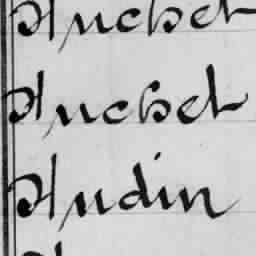 Huchet
Huchet
Hudin